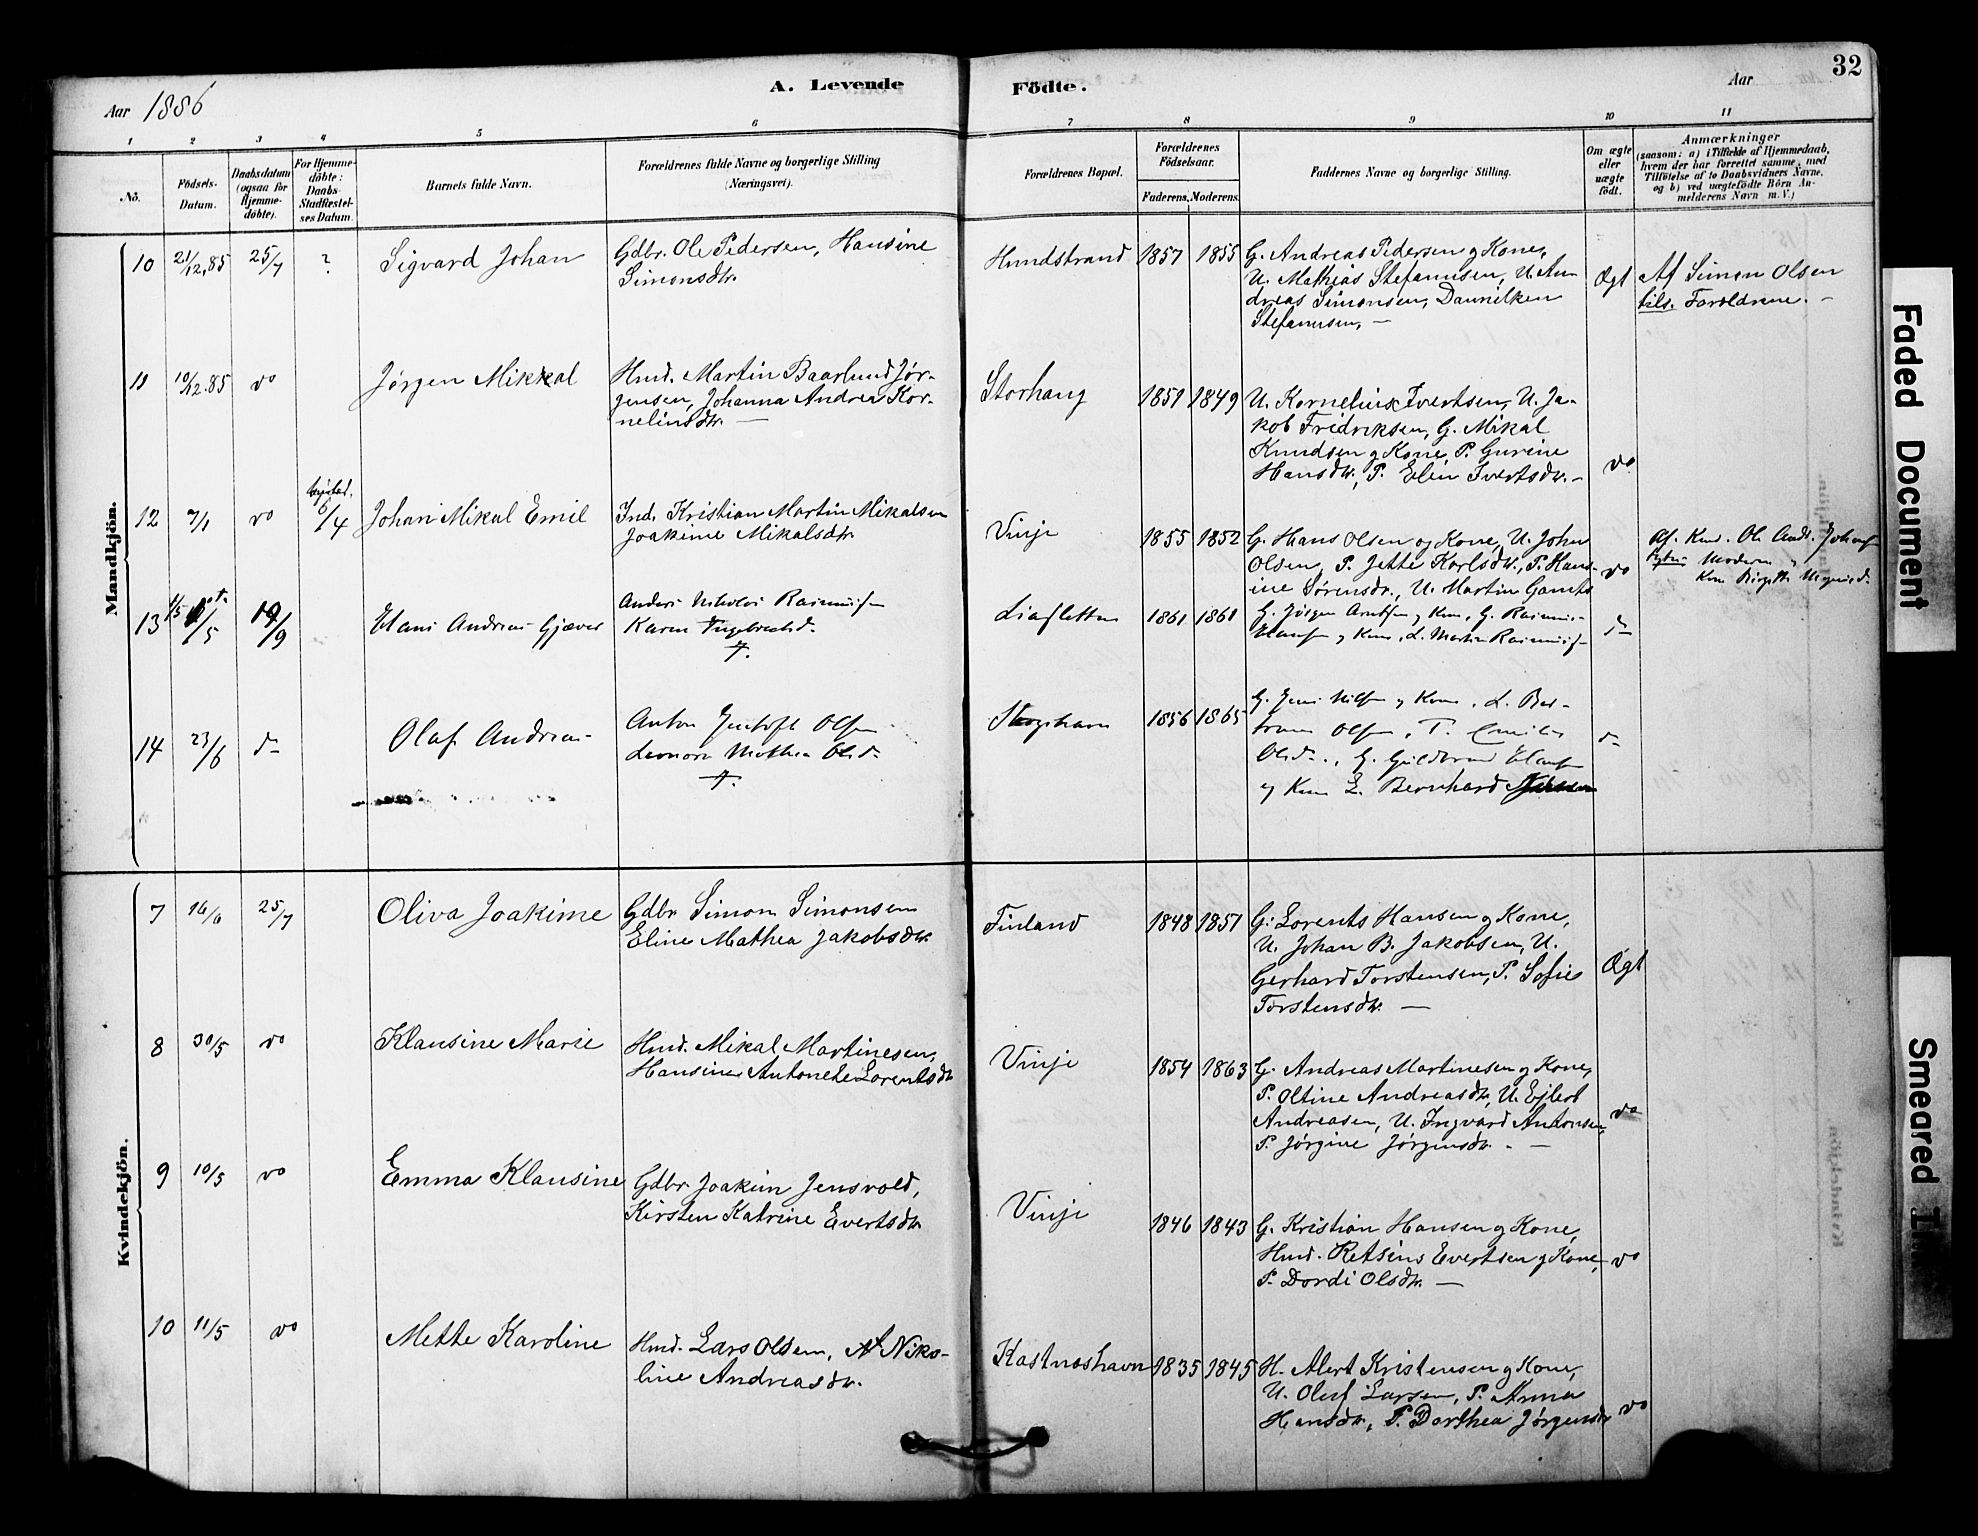 32
A. Levende Födte.
Aar 1886
Aar
1 2 3 4 5 6 7 8 9 10 11
No.
Födsels-Datum.
Daabsdatum (ogsaa for Hjemme-döbte).
For Hjemme-döbte: Daabs-Stadfæstel-ses Datum.
Barnets fulde Navn.
Forældrenes fulde Navne og borgerlige Stilling (Næringsvei).
Forældrenes Bopæl.
Forældrenes Födselsaar.
Faderens. Moderens.
Faddernes Navne og borgerlige Stilling.
Om ægte eller uægte födt.
Anmærkninger
(saasom: a) i Tilfælde af Hjemmedaab,
hvem der har forrettet samme, med
Tilföielse af to Daabsvidners Navne,
og b) ved uægtefödte Börn An-
melderens Navn m. V.)
Mandkjön.
10 21/12,85 25/7 ? Sigvard Johan
Gdbr. Ole Pedersen, Hansine
Simonsdtr.
Hundstrand 1857 1855
G. Andreas Pedersen og Kone,
U. Mathias Stefanusen, U. An-
dreas Simonsen, Danniken
Stefanusen, —
Ægt
Af Simon Olsen
tils. Foroldrene. —
11 10/12.85 do Jørgen Mikkal
Hmd. Martin Baarlund Jør-
gensen, Johanna Andrea Kor-
neliusdtr. —
Storhaug 1851 1849
U. Kornelius Evertsen, U. Ja-
kob Fridriksen, G. Mikal
Knudsen og Kone, P. Gurine
Hansdtr., P. Elen Ivertsdtr. —
do
12 7/1 do 6/4 Johan Mikal Emil
Ind. Kristian Martin Mikalsen
Joakime Mikalsdtr.
Vinje 1855 1852
G. Hans Olsen og Kone, U. John
Olsen, P. Jette Karlsdtr., P. Hans-
ine Sørensdtr., U. Martin
do
13 19/9 Hans Andreas Gjæver
Anders Nikolai Rasmussen
Karen Ingebrechtsd.
Liasletten 1861 1861
G. Jørgen Arntsen og Kone, G. Rasmus
Hansen og Kone, L. Martin Rasmussen
d—
14 23/6 d— Olaf Andreas
Anton Olsen
Leonora Mathea Olsd.
1856 1865
G. Jens Nilsen og Kone, L. Ber-
Olsen, P.
Olsd., G. Hansen
og Kone L. Bernhard
d—
Kvindekjön.
7 16/6 25/7 Oliva Joakime
Gdbr Simon Simonsen
Eline Mathea Jakobsdtr.
Finland 1848 1851
G. Lorents Hansen og Kone,
U. Johan B. Jakobsen, U.
Gerhard Torstensen, P. Sofie
Torstensdtr. —
Ægt
8 30/5 do Klausine Marie
Hmd. Mikal Martinesen,
Hansine Antonete Lorentsdtr
Vinje 1854 1863
G. Andreas Martinesen og Kone,
P. Oltine Andreasdtr, U. Ejlert
Andreasen, U. Ingvard Antonsen,
P. Jørgine Jørgensdtr. —
do
9 10/5 do Emma Klausine
Gdbr Joakim Jensvold,
Kirsten Katrine Evertsdtr
Vinje 1846 1843
G. Kristian Hansen og Kone,
Hmd. Retsius Evertsen og Kone,
P. Dordi Olsdtr. —
do
10 11/5 do Mette Karoline
Hmd. Lars Olsen, At Niko-
line Andreasdtr.
Kastnæshavn 1835 1845
H. Alert Kristensen og Kone,
U. Oluf Larsen, P. Anna
Hansdtr, P. Dorthea Jørgensdtr
do
Faded Document
Smeared Ink